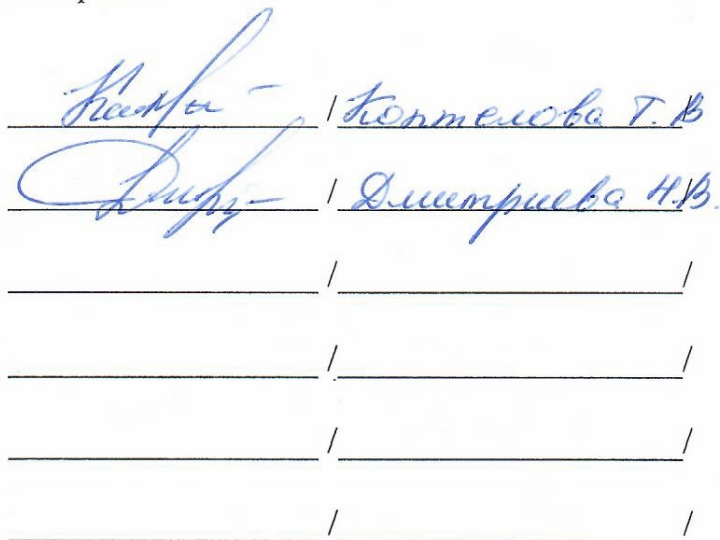 / Коптелова Т.В /
/ Дмитриева Н.В. /
/ /
/ /
/ /
/ /